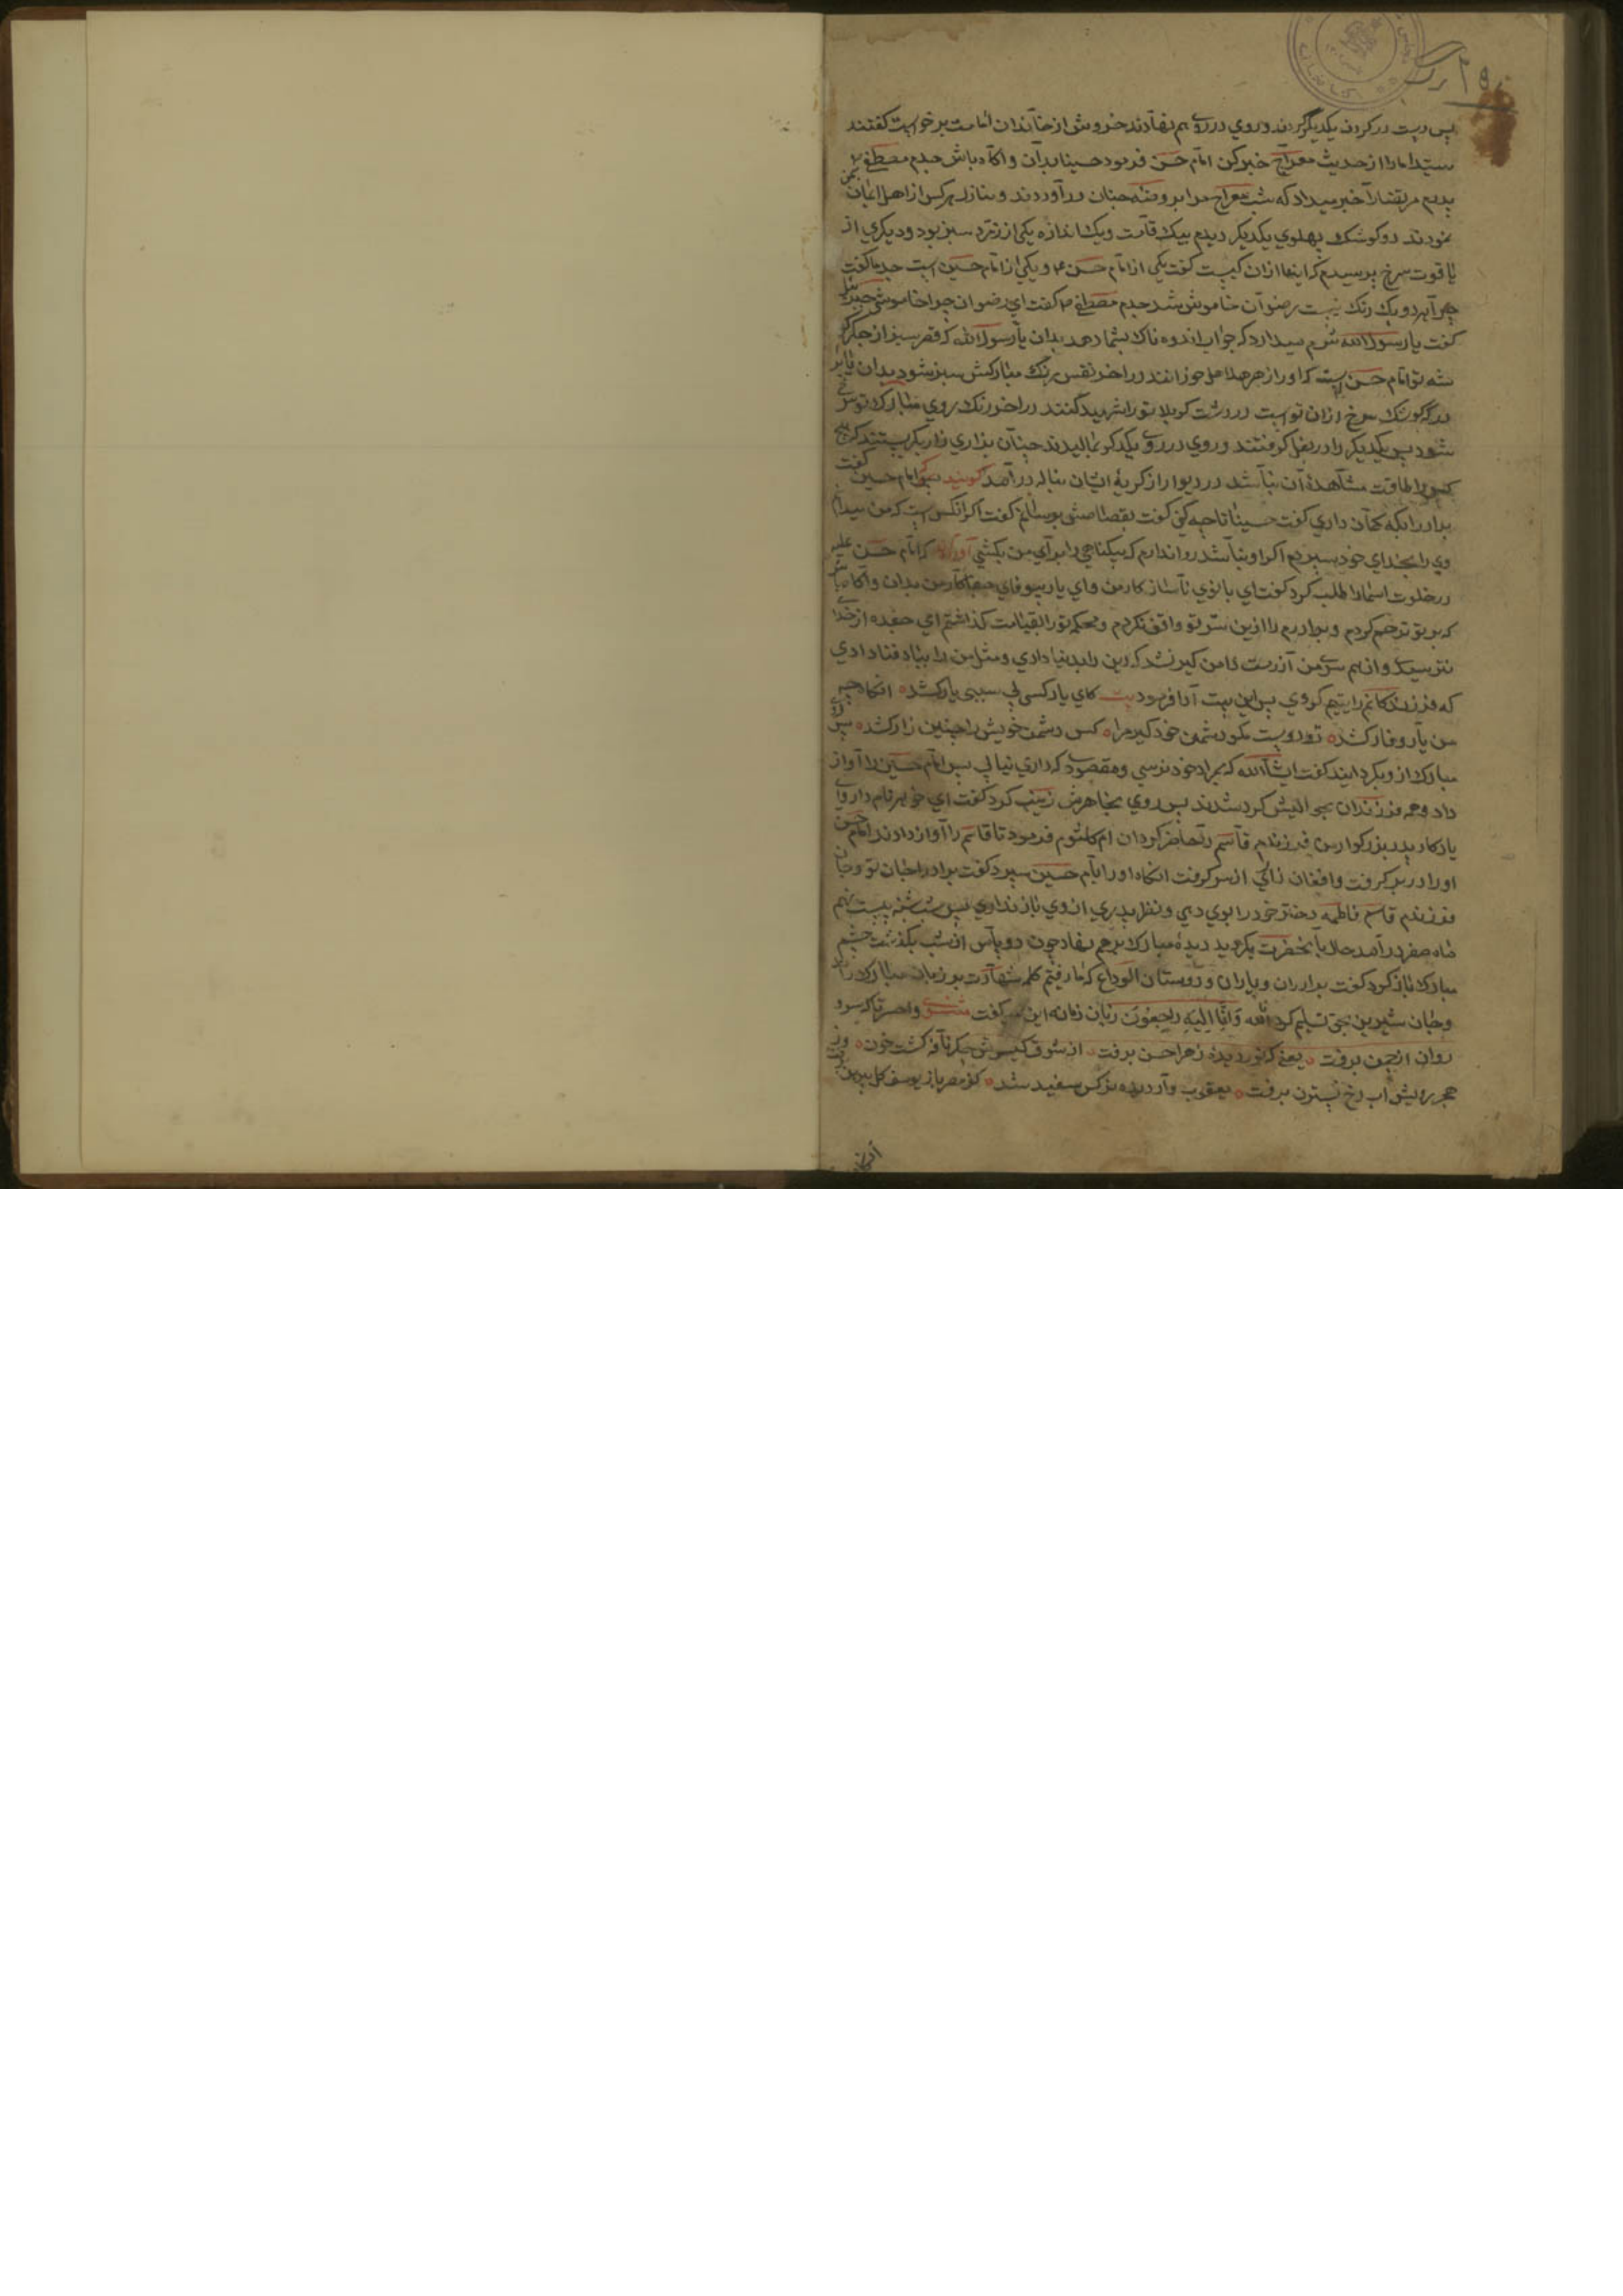 پس دست در کردن یکدیگر کردند و روی در روی هم نهادند خروش از خاندان امامت برخواست کفتند
سیدا مارا از حدیث معراج خبر کن امام حسن فرمود حسینا بدان و آکاه باش جدم مصطفی
پدرم مرتضارا خبر میداد که شب معراج مرا بروضه جنان در آوردند و منازل هر کس از اهل ایمان بمن
نمودند دو کوشک پهلوی یکدیکر دیدم بیک قامت و یک اندازه یکی از زمرد سبز بود و دیکری از
یاقوت سرخ پرسیدم که اینها از ان کیست کفت یکی از امام حسن و یکی از امام حسین است جدم کفت
چرا هر دو یک رنک نیست رضوان خاموش شد جدم مصطفی کفت ای رضوان چرا خاموشی
کفت یا رسول الله شرم میدارد که جواب اندوه ناک بشما دهد بدان یا رسول الله که قصر سبز از جکر کو
شه تو امام حسن است که او را زهر هلاهل خورانند در اخر نفس رنک مبارکش سبز شود بدان
دیکر کوشک سرخ از ان تو است در دشت کربلا تو را شهید کنند در اخر رنک روی مبارک تو سرخ
شود پس یکدیکر را در بغل کرفتند و روی در روی یکدکر مالیدند چنان بزاری زار بکریستند که هیچ
کس را طاقت مشاهده آن نباشد در دیوار از کریه ایشان بناله در آمد کویند که امام حسین کفت
برادر را بکه کمان داری کفت حسینا تا چه کنی کفت بقصاصش برسانم کفت اکر آنکس است که من میدانم
وی را بخدای خود سپردم اکر او نباشد روا ندارم که بیکناهی را برای من بکشی آورده‌اند که امام حسن علیه
در خلوت اسمارا طلب کرد کفت ای بانوی ناساز کار من وای یار بیوفای جفا کار من بدان و آکاه باش
که بر تو ترحم کردم و برادرم را ازین سر تو واقف نکردم و محکمه تو را بقیامت کذاشتم ای جعده از خدا
نترسیدی و از هم سری من آزرمت دامن کیر نشد که دین را بدنیا دادی و مثل من را بباد فنا دادی
که فرزندکانم را یتیم کردی پس این بیت ادا فرمود بیت کای یار کسی بی سببی یار کشد ه انکاه چه
من یار وفادار کشد ه تو دوست مکو دشمن خود کیر مرا ه کس دشمن خویش را چنین زار کشد ه پس روی
مبارک از و بکردانید کفت ان شاالله که بمراد خود نرسی و مقصودی که داری نیابی پس امام حسین را آواز
داد و همه فرزندان بحوالیش کرد شدند پس روی بخاهرش زینب کرد کفت ای خواهر نام دار وای
یادکار پدر بزرکوار من فرزندم قاسم را حاضر کردان ام کلثوم فرمود تا قاسم را آواز دادند امام حسن
او را در بر کرفت و افغان زاری از سر کرفت انکاه او را بامام حسین سپرد کفت برادر را جان تو و جان
فرزندم قاسم فاطمه دختر خود را بوی دهی و نظر پدری از وی باز نداری پس شب شنبه بیست نهم
ماه صفر در آمد حال بآنحضرت بکردید دیده مبارک برهم نهاد چون دو پاس از شب بکذشت چشم
مبارک باز کرد کفت برادران و یاران و دوستان الوداع که ما رفتیم کلمه شهادت بر زبان مبارک راند
و جان شیرین بحق تسلیم کرد انا لله وَاِنَّا اِلَیهِ رَاجِعُونَ زبان زمانه این میکفت مثنوی واحسرتا که سرو
روان از چمن برفت ه یعنی که نور دیده زهرا حسن برفت ه از شوق کیسوش جکر نافه کشت خون ه وز
هجر رویش آب رخ نسترن برفت ه یعقوب وار دیده نرکس سفید شد ه کز مصر باز یوسف کل پیرهن برفت